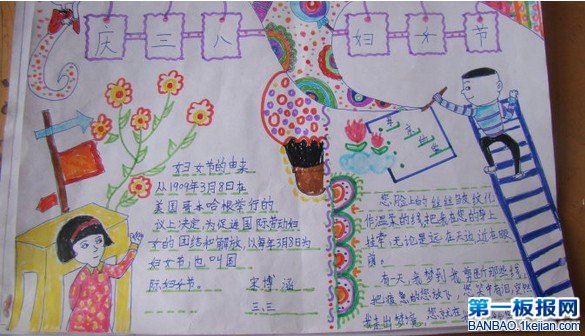 庆三八妇女节
妇女节的由来
从1909年3月8日在
美国哥本哈根举行的
议上决定,为促进国际劳动妇
女的团结和解放,以每年3月8日为
妇女节,也叫国
际妇女节。
宋博涵
三、三
您脸上的丝丝皱纹化
作温柔的线把我在您的身上
挂牵,无论是远在天边近在眼
有一天,我梦到我剪断那些线,
第一板报网
BANBAO.1kejian.com